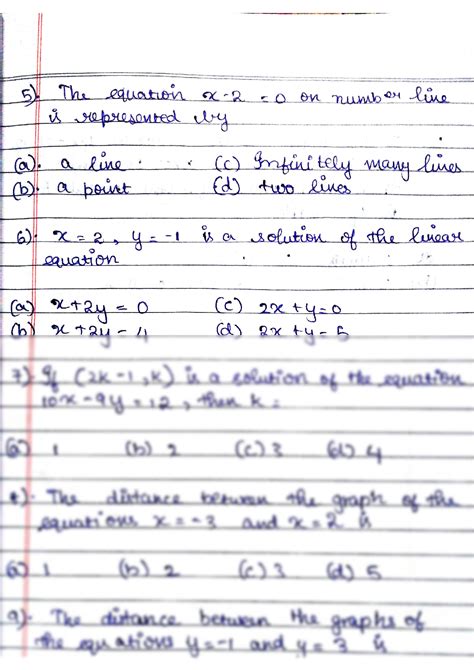 5). The equation x-2 = 0 on number line
is represented by
(a). a line (c) Infinitely many lines
(b). a point (d) two lines
6). x = 2, y = -1 is a solution of the linear
equation
(a) x+2y = 0 (c) 2x+y=0
(b) x+2y = 4 (d) 2x+y=5
7). If (2k-1, k) is a solution of the equation
10x-9y=12, then k =
(a) 1 (b) 2 (c) 3 (d) 4
8). The distance between the graph of the
equations x = -3 and x = 2 is
(a) 1 (b) 2 (c) 3 (d) 5
9). The distance between the graphs of
the equations y=-1 and y = 3 is